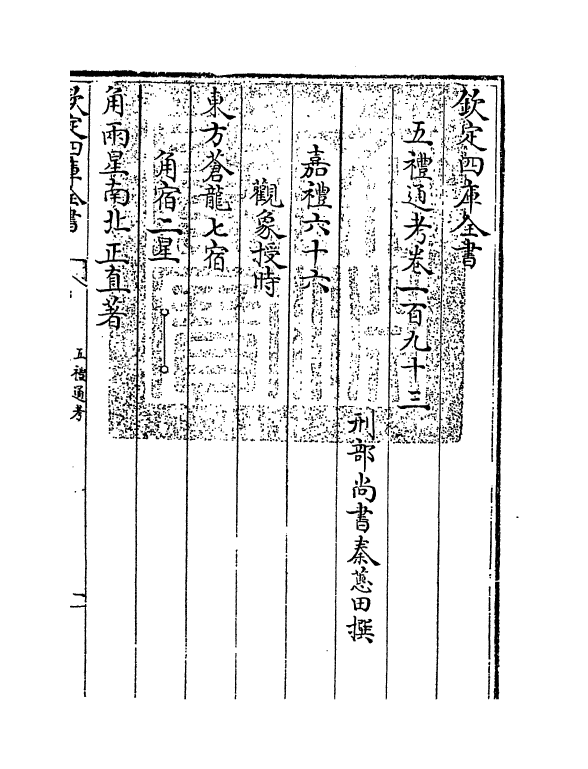 欽定四庫全書
五禮通考卷一百九十三
刑部尚書秦蕙田撰
嘉禮六十六
觀象授時
東方蒼龍七宿
角宿二星
角兩星南北正直著
欽定四庫全書
五禮通考